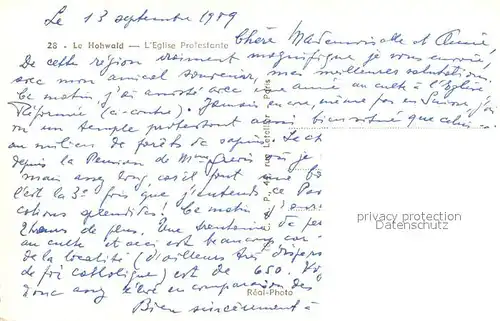 Le 13 septembre 1959
28 - Le Hohwald — L'Eglise Protestante
Chère Mademoiselle et Amie,
De cette région vraiment magnifique, je vous envoie,
avec mon amical souvenir, mes meilleures salutations.
Ce matin, j'ai assisté avec une amie au culte à l'Eglise
Réformée (ci-contre). Jamais encore, même pas en Suisse, j'ai
vu un temple protestant aussi bien situé que celui-ci
au milieu de forêts de sapins. Le ch
depuis la Pension de Mme où je
mais assez long car il faut une
C'est la 3e fois que j'entends ce Pas
splendides! Ce matin j'
2 heures de plus. Une trentaine de per
au culte et ceci est beaucoup car
de la localité (d'ailleurs très
de foi catholique) est de 650.
donc assez élevé en comparaison des
Bien sincèrement à
Réal-Photo
privacy protection